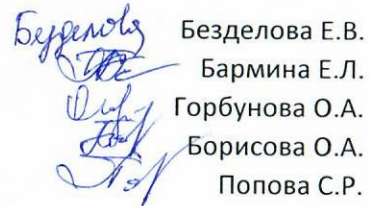 Безделова Безделова Е.В.
Бармина Е.Л.
Горбунова О.А.
Борисова О.А.
Попова С.Р.